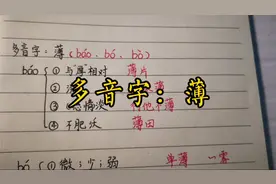 多音字：薄（báo、bó、bò）
báo ① 与"厚"相对 薄片
② 
多音字：薄
③ 感情淡 待他不薄
④ 不肥沃 薄田
bó ① 微；少；弱 单薄 一雾